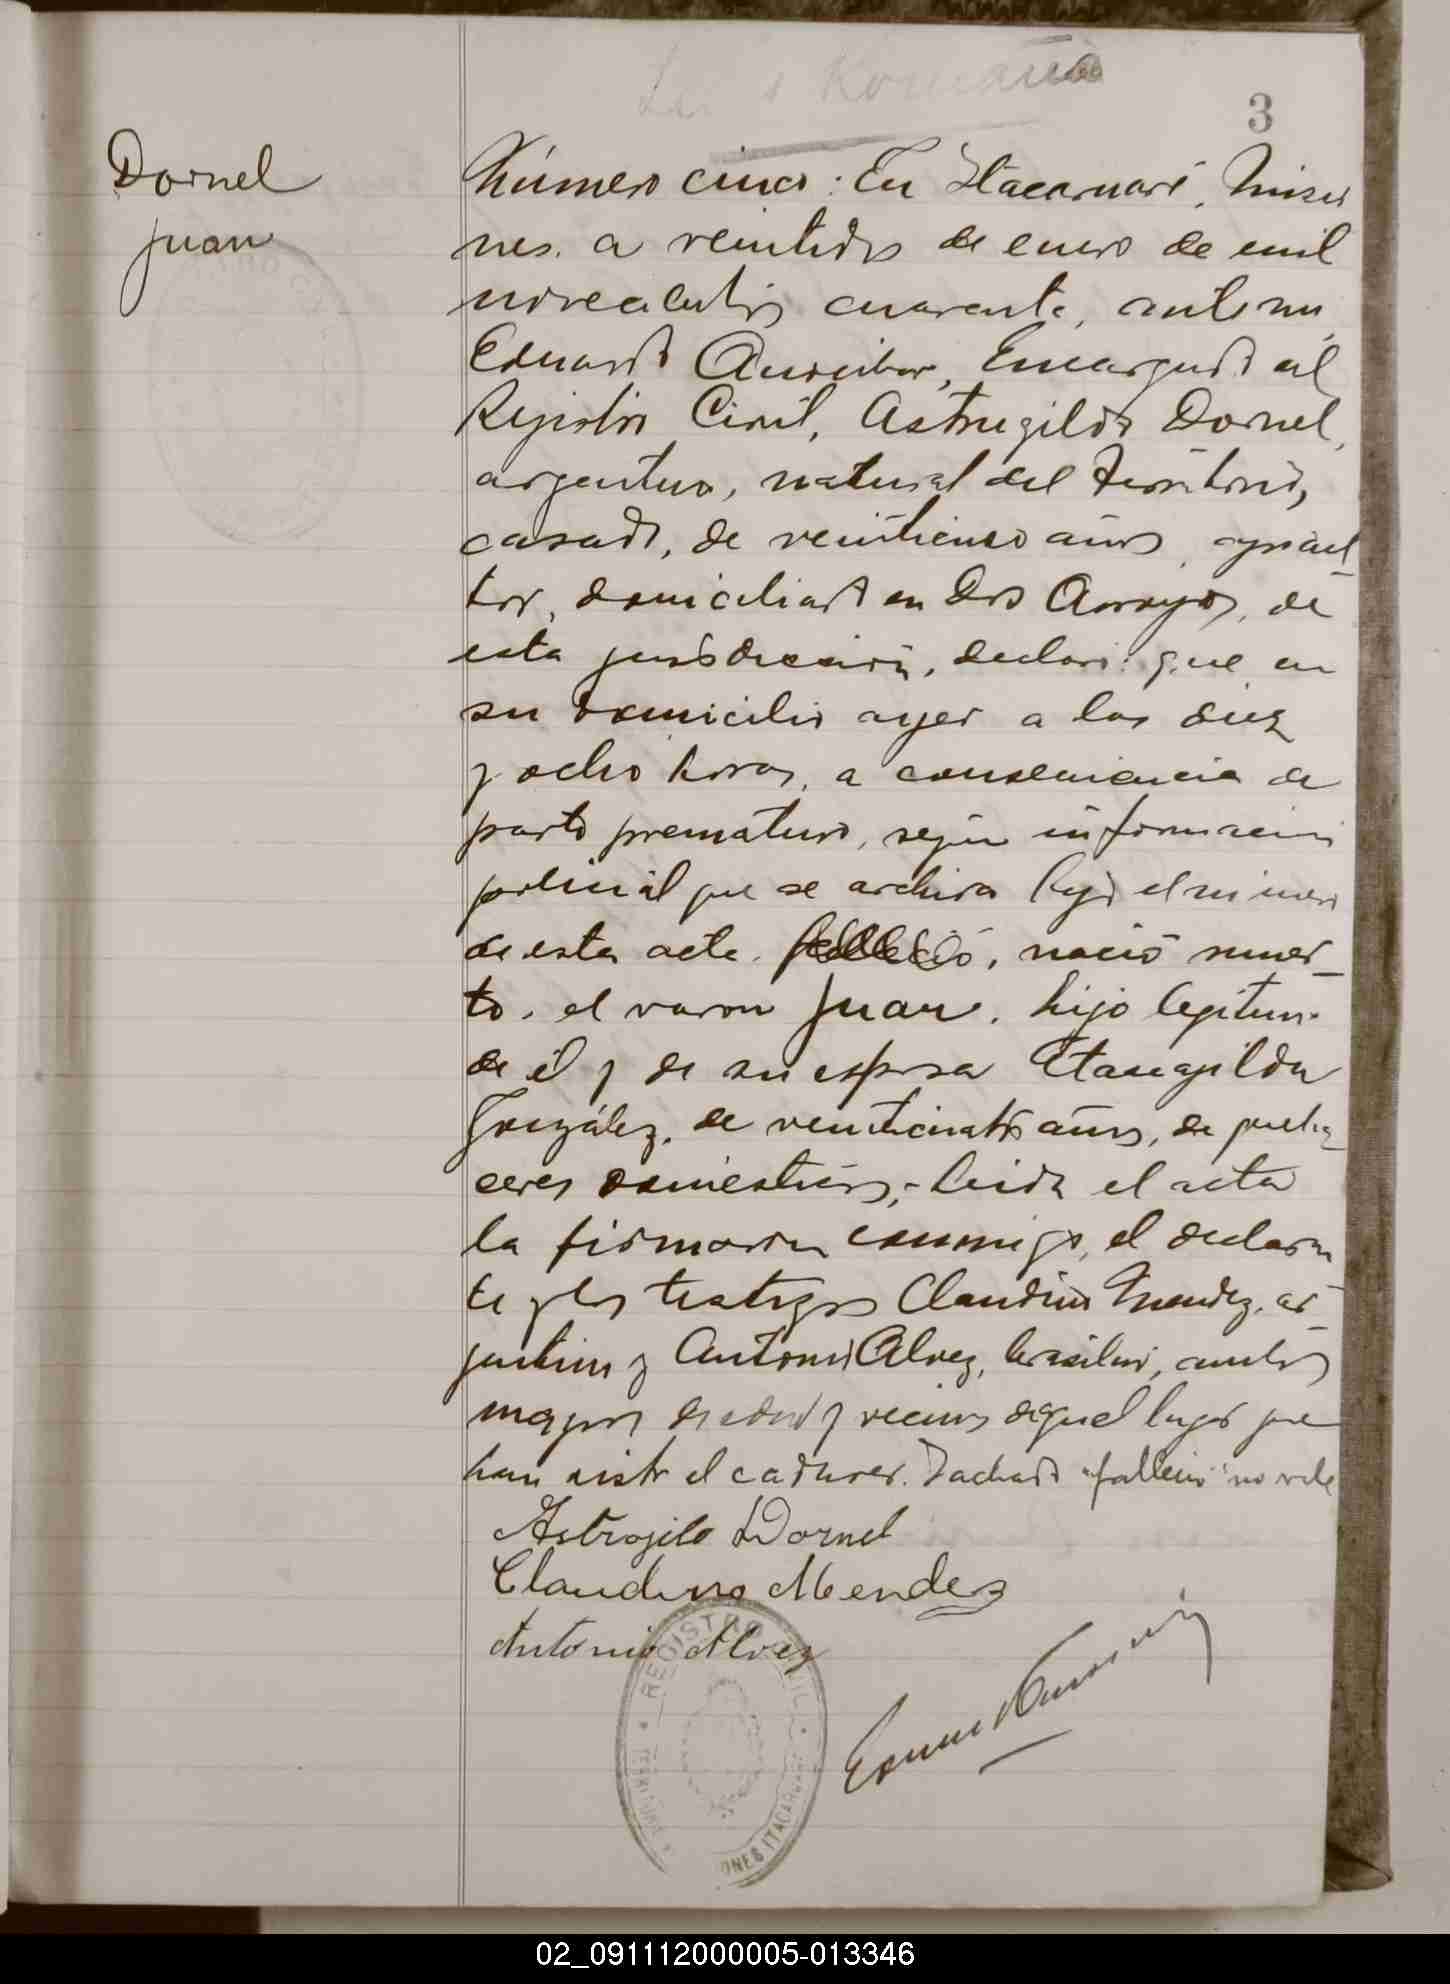 3
Dornel
Juan
Número cinco: En Itacaruaré, Misio
nes, a veintidos de enero de mil
novecientos cuarenta, ante mí,
Eduardo Encargado del
Registro Civil, Astrugildo Dornel,
argentino, natural del Territorio,
casado, de veinticinco años, agricul
tor, domiciliado en Dos Arroyos, de
esta jurisdicción, declaró: que en
su domicilio ayer a las diez
y ocho horas, a consecuencia de
parto prematuro, según información
policial que se archiva bajo el número
de esta acta, falleció, nació muer_
to, el varon Juan, hijo legítimo
de él y de su esposa Etanagilda
González, de veinticuatro años, de queha_
ceres domésticos;- Leida el acta
la firmaron conmigo, el declaran
te y los testigos Claudino Mendez, ar_
gentino y Antonio Alvez, brasilero, ambos
mayores de edad y vecinos de aquel lugar que
han visto el cadaver. Tachado "falleció" no vale
Astrogildo Dornel
Claudino Mendez
Antonio Alvez
REGISTRO CIVIL
ITACARUARE
02_091112000005-013346